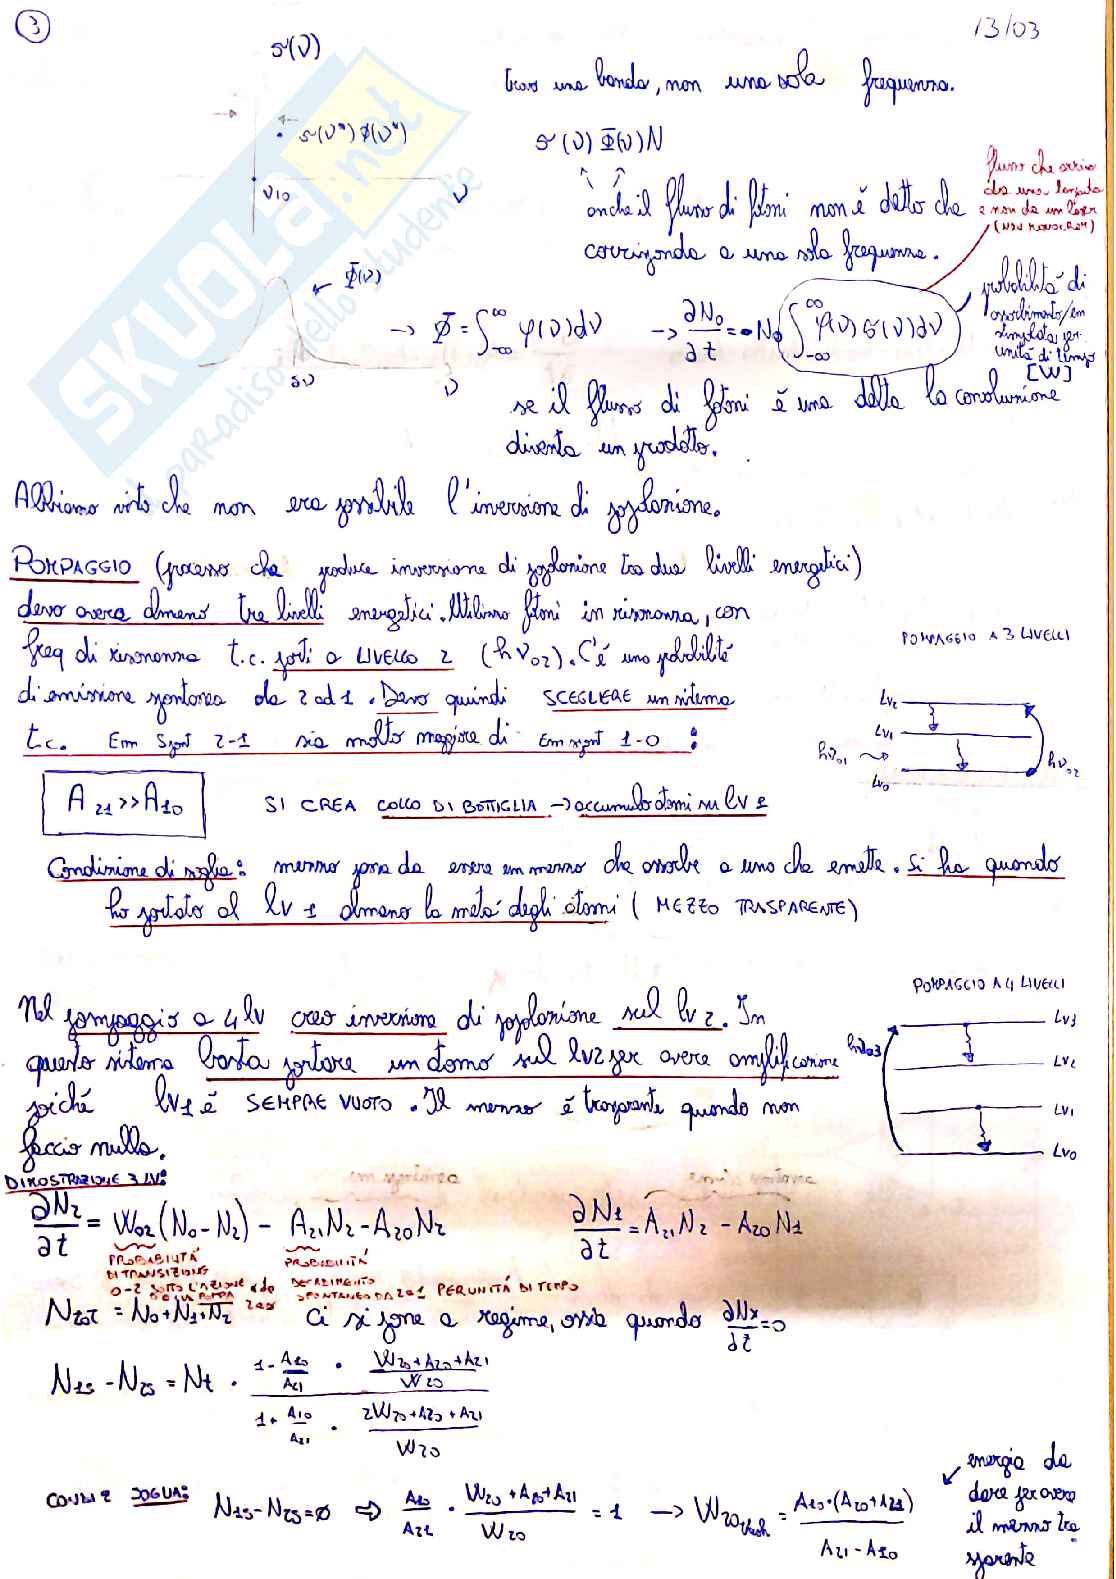 3
13/03
σ(ν)
trovo una banda, non una sola frequenza.
σ(ν*)φ(ν*)
σ(ν)Φ(ν)N
ν10
ν
flusso che arriva
da una lampada
e non da un laser
(NON MONOCROM)
anche il flusso di fotoni non è detto che
corrisponda a una sola frequenza.
Φ(ν)
→ Φ = ∫_{-∞}^{∞} φ(ν)dν → ∂N0/∂t = -N0 ∫_{-∞}^{∞} φ(ν)σ(ν)dν
probabilità di
assorbimento/em
stimolata per
unità di tempo
[W]
δν
ν
se il flusso di fotoni è una delta la convoluzione
diventa un prodotto.
Abbiamo visto che non era possibile l'inversione di popolazione.
POMPAGGIO (processo che produce inversione di popolazione tra due livelli energetici)
devo avere almeno tre livelli energetici. Utilizzo fotoni in risonanza, con
freq di risonanza t.c. porti a LIVELLO 2 (hν02). C'è una probabilità
di emissione spontanea da 2 ad 1. Devo quindi SCEGLIERE un sistema
t.c. Em Spont 2-1 sia molto maggiore di Em spont 1-0 :
POMPAGGIO A 3 LIVELLI
Lv2
Lv1
hν01
Lv0
hν02
A21>>A10
SI CREA COLLO DI BOTTIGLIA → accumulo atomi su lv 1
Condizione di soglia: mezzo passa da essere un mezzo che assorbe a uno che emette. Si ha quando
ho portato al lv 1 almeno la metà degli atomi (MEZZO TRASPARENTE)
POMPAGGIO A 4 LIVELLI
Nel pompaggio a 4 lv creo inversione di popolazione sul lv 2. In
questo sistema basta portare un atomo sul lv2 per avere amplificazione
poiché lv1 è SEMPRE VUOTO. Il mezzo è trasparente quando non
faccio nulla.
hν03
Lv3
Lv2
Lv1
Lv0
DIMOSTRAZIONE 3 LV:
∂N2/∂t = W02(N0-N2) - A21N2 - A20N2
∂N1/∂t = A21N2 - A20N1
PROBABILITÀ
DI TRANSIZIONE
0-2 SOTTO L'AZIONE
PROBABILITÀ
DECADIMENTO
SPONTANEO DA 2 a 1 PER UNITÀ DI TEMPO
NTOT = N0+N1+N2
Ci si pone a regime, ossia quando ∂Nx/∂t=0
N1s - N2s = Nt · (1 - A10/A21 · (W20+A20+A21)/W20) / (1 + A10/A21 · (2W20+A20+A21)/W20)
CONDIZ SOGLIA: N1s-N2s=0 ⇒ A10/A21 · (W20+A20+A21)/W20 = 1 → W20thresh = A10·(A20+A21)/(A21-A10)
energia da
dare per avere
il mezzo tra
sparente
SKUOLA.not
il paradiso dello skudente